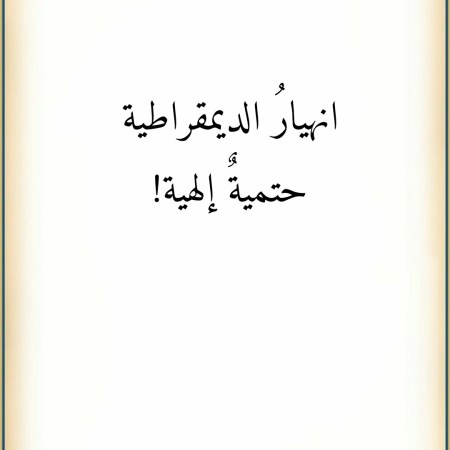 انهيارُ الديمقراطية
حتميةٌ إلهية!